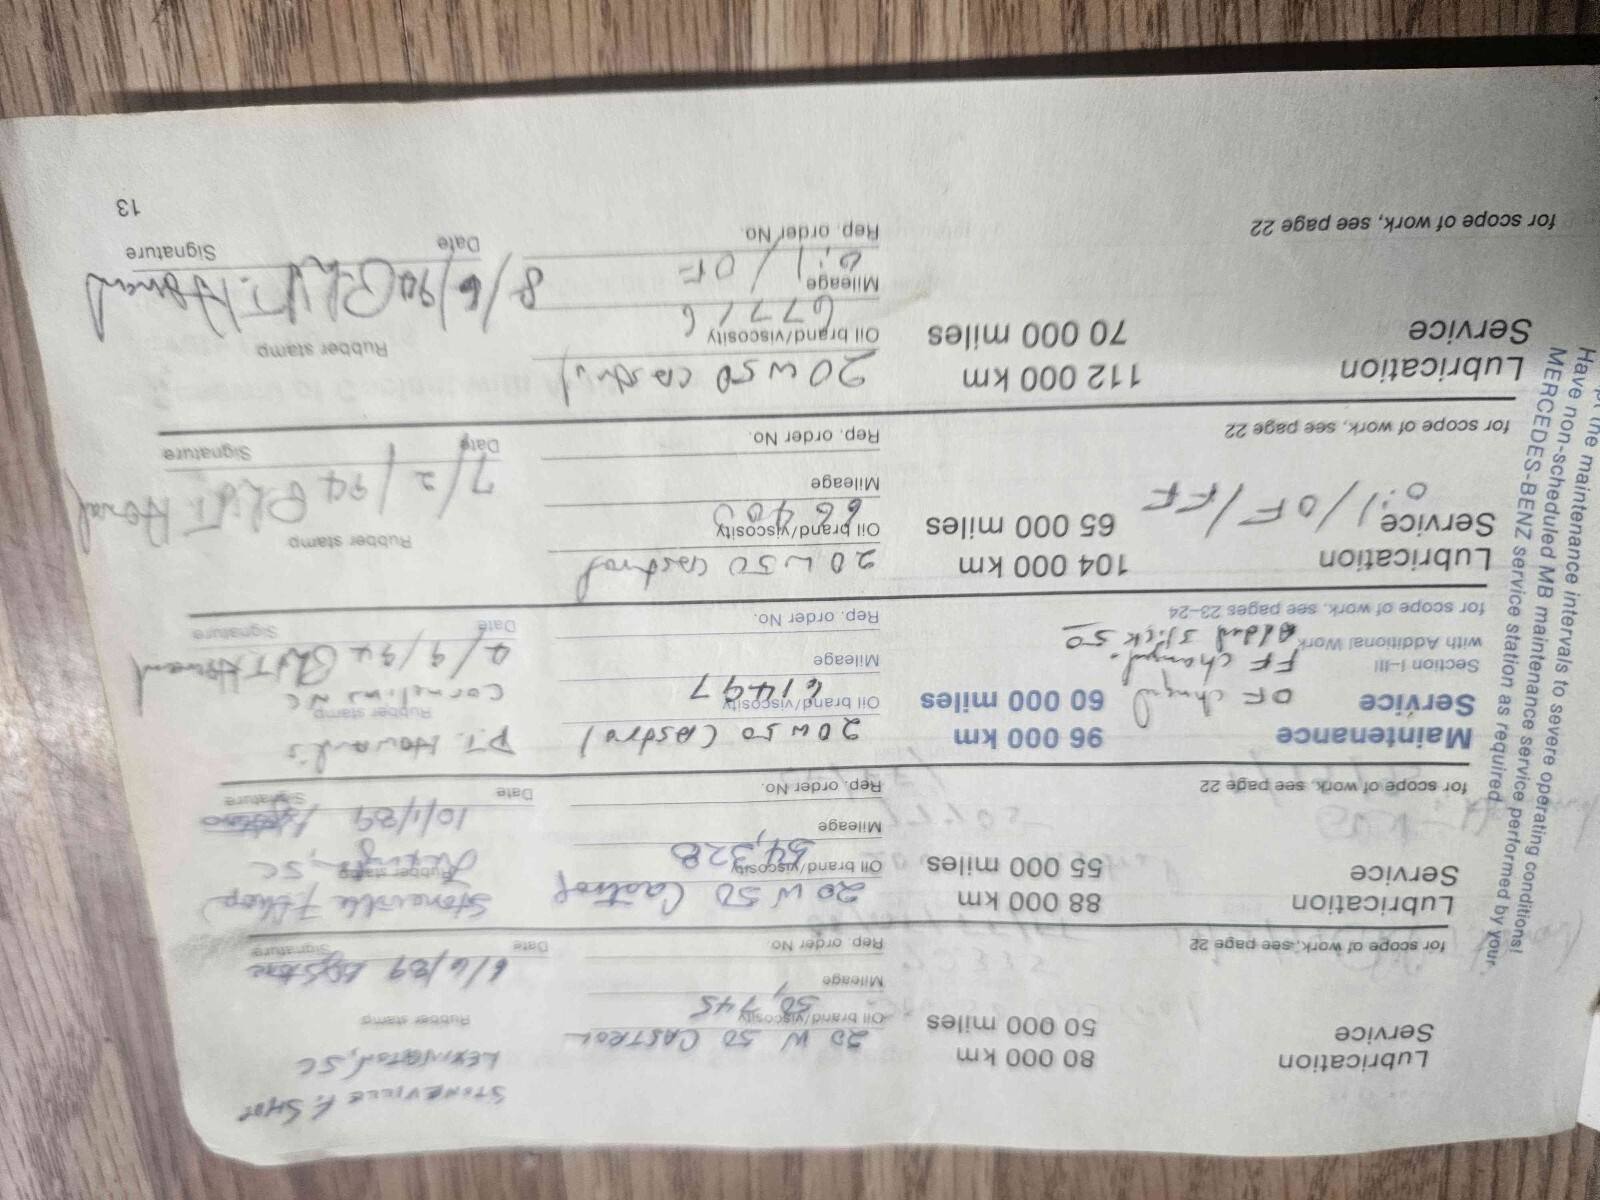 STONEVILLE F. SHOP
LEXINGTON, SC
Lubrication
Service
80 000 km
50 000 miles
20 W 50 CASTROL
Oil brand/viscosity
50,745
Mileage
Rep. order No.
Rubber stamp
6/6/89
Date
Signature
for scope of work, see page 22
Lubrication
Service
88 000 km
55 000 miles
20 W 50 Castrol
Oil brand/viscosity
54,328
Mileage
Rep. order No.
Stoneville F. Shop
Rubber stamp
Lexington, SC
10/1/89
Date
Signature
for scope of work, see page 22
Maintenance
Service
96 000 km
60 000 miles
OF changed
Section I–III
FF changed.
with Additional Work
Added Slick 50
for scope of work, see pages 23–24
20W50 Castrol
Oil brand/viscosity
61497
Mileage
Rep. order No.
P.T. Howard's
Rubber stamp
Cornelius NC
4/9/94
Date
Signature
Lubrication
Service
104 000 km
65 000 miles
Oil/OF/FF
for scope of work, see page 22
20W50 Castrol
Oil brand/viscosity
Mileage
Rep. order No.
Rubber stamp
7/2/94
Date
Signature
Lubrication
Service
112 000 km
70 000 miles
for scope of work, see page 22
20W50 Castrol
Oil brand/viscosity
67716
Mileage
Oil/OF
Rep. order No.
Rubber stamp
8/6/94
Date
Signature
13
the maintenance intervals to severe operating conditions!
Have non-scheduled MB maintenance service performed by your
MERCEDES-BENZ service station as required.